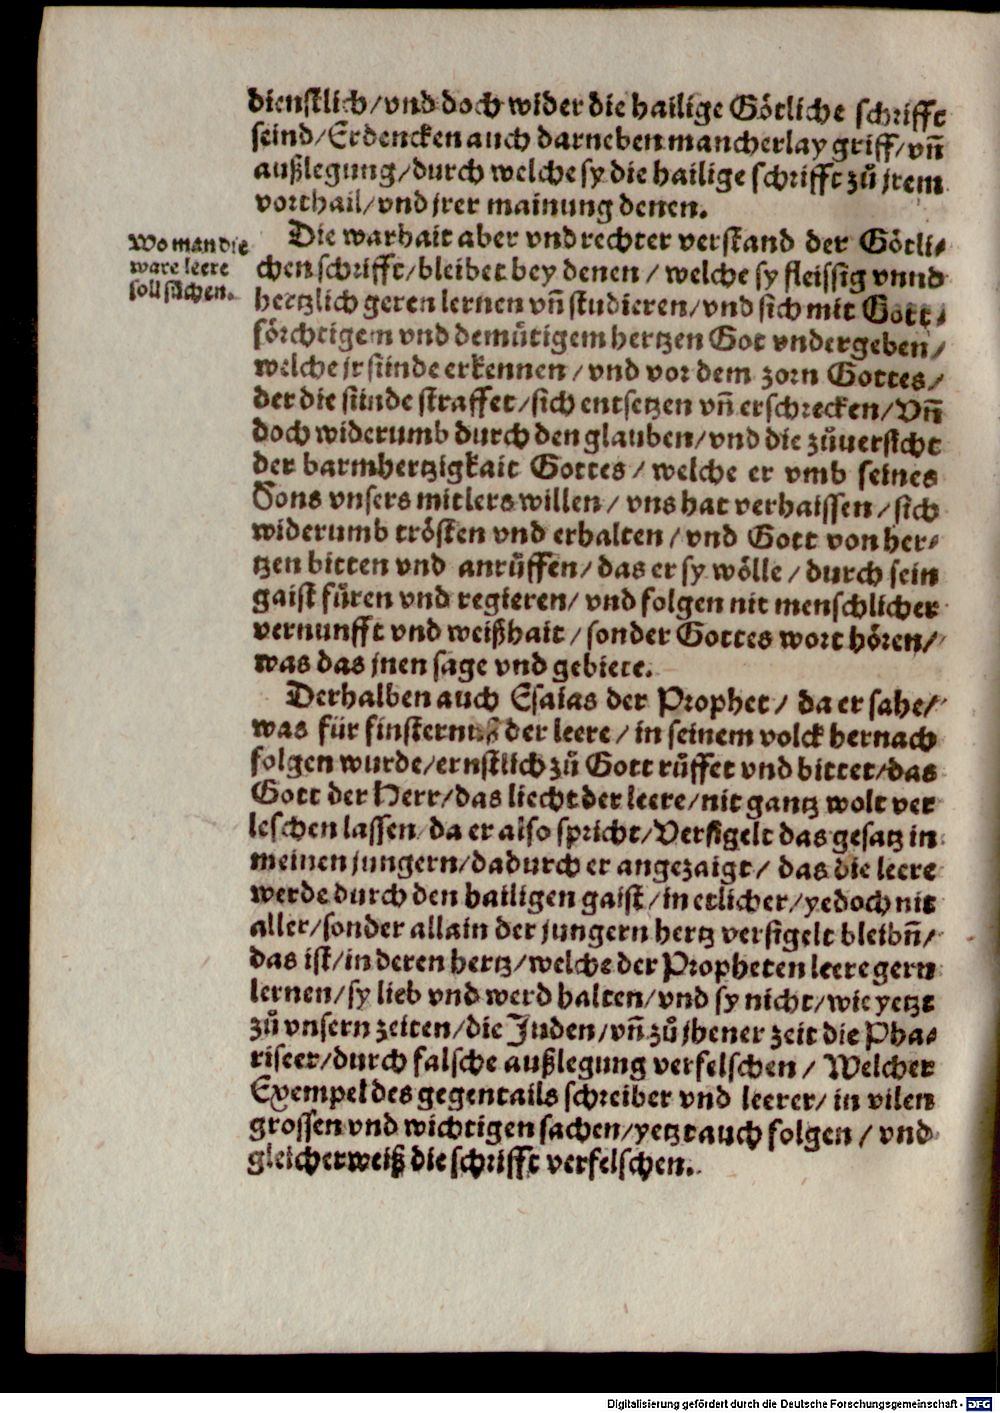 dienstlich/vnd doch wider die hailige Götliche schrifft
seind/Erdencken auch darneben mancherlay griff/vñ
außlegung/durch welche sy die hailige schrifft zů jrem
vorthail/vnd jrer mainung denen.
Wo man die
ware leere
soll sůchen.
Die warhait aber vnd rechter verstand der Götli⸗
chen schrifft/bleibet bey denen/welche sy fleissig vnnd
hertzlich geren lernen vñ studieren/vnd sich mit Gott⸗
förchtigem vnd demütigem hertzen Got vndergeben/
welche jr sünde erkennen/vnd vor dem zorn Gottes/
der die sünde straffet/sich entsetzen vñ erschrecken/Vñ
doch widerumb durch den glauben/vnd die zůuersicht
der barmhertzigkait Gottes/welche er vmb seines
Sons vnsers mitlers willen/vns hat verhaissen/sich
widerumb trösten vnd erhalten/vnd Gott von her⸗
tzen bitten vnd anrůffen/das er sy wölle/durch sein
gaist füren vnd regieren/vnd folgen nit menschlicher
vernunfft vnd weißhait/sonder Gottes wort hören/
was das jnen sage vnd gebiete.
Derhalben auch Esaias der Prophet/da er sahe/
was für finsternuß der leere/in seinem volck hernach
folgen wurde/ernstlich zů Gott rüffet vnd bittet/das
Gott der Herr/das liecht der leere/nit gantz wolt ver
leschen lassen/da er also spricht/Versigelt das gesatz in
meinen jungern/dadurch er angezaigt/das die leere
werde durch den hailigen gaist/in etlicher/yedoch nit
aller/sonder allain der jungern hertz versigelt bleibñ/
das ist/in deren hertz/welche der Propheten leere gern
lernen/sy lieb vnd werd halten/vnd sy nicht/wie yetzt
zů vnsern zeiten/die Juden/vñ zů jhener zeit die Pha⸗
riseer/durch falsche außlegung verfelschen/Welcher
Exempel des gegentails schreiber vnd leerer/in vilen
grossen vnd wichtigen sachen/yetzt auch folgen/vnd
gleicherweiß die schrifft verfelschen.
Digitalisierung gefördert durch die Deutsche Forschungsgemeinschaft - DFG